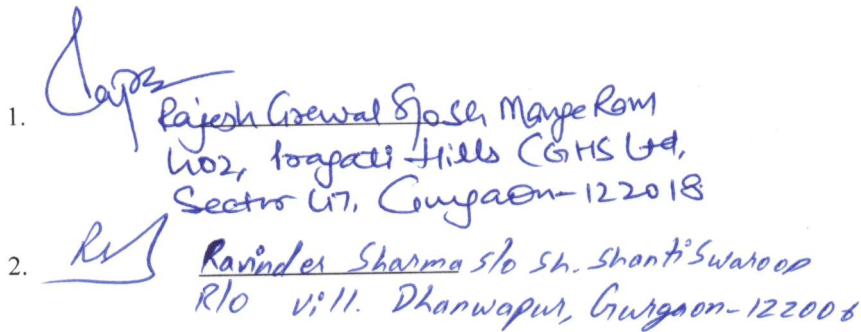 1. Rajesh Grewal S/o Sh Mange Ram
402, Pragati Hills CGHS Ltd,
Sector 47, Gurgaon-122018
2. Ravinder Sharma s/o Sh. Shanti Swaroop
R/o vill. Dhanwapur, Gurgaon-122006